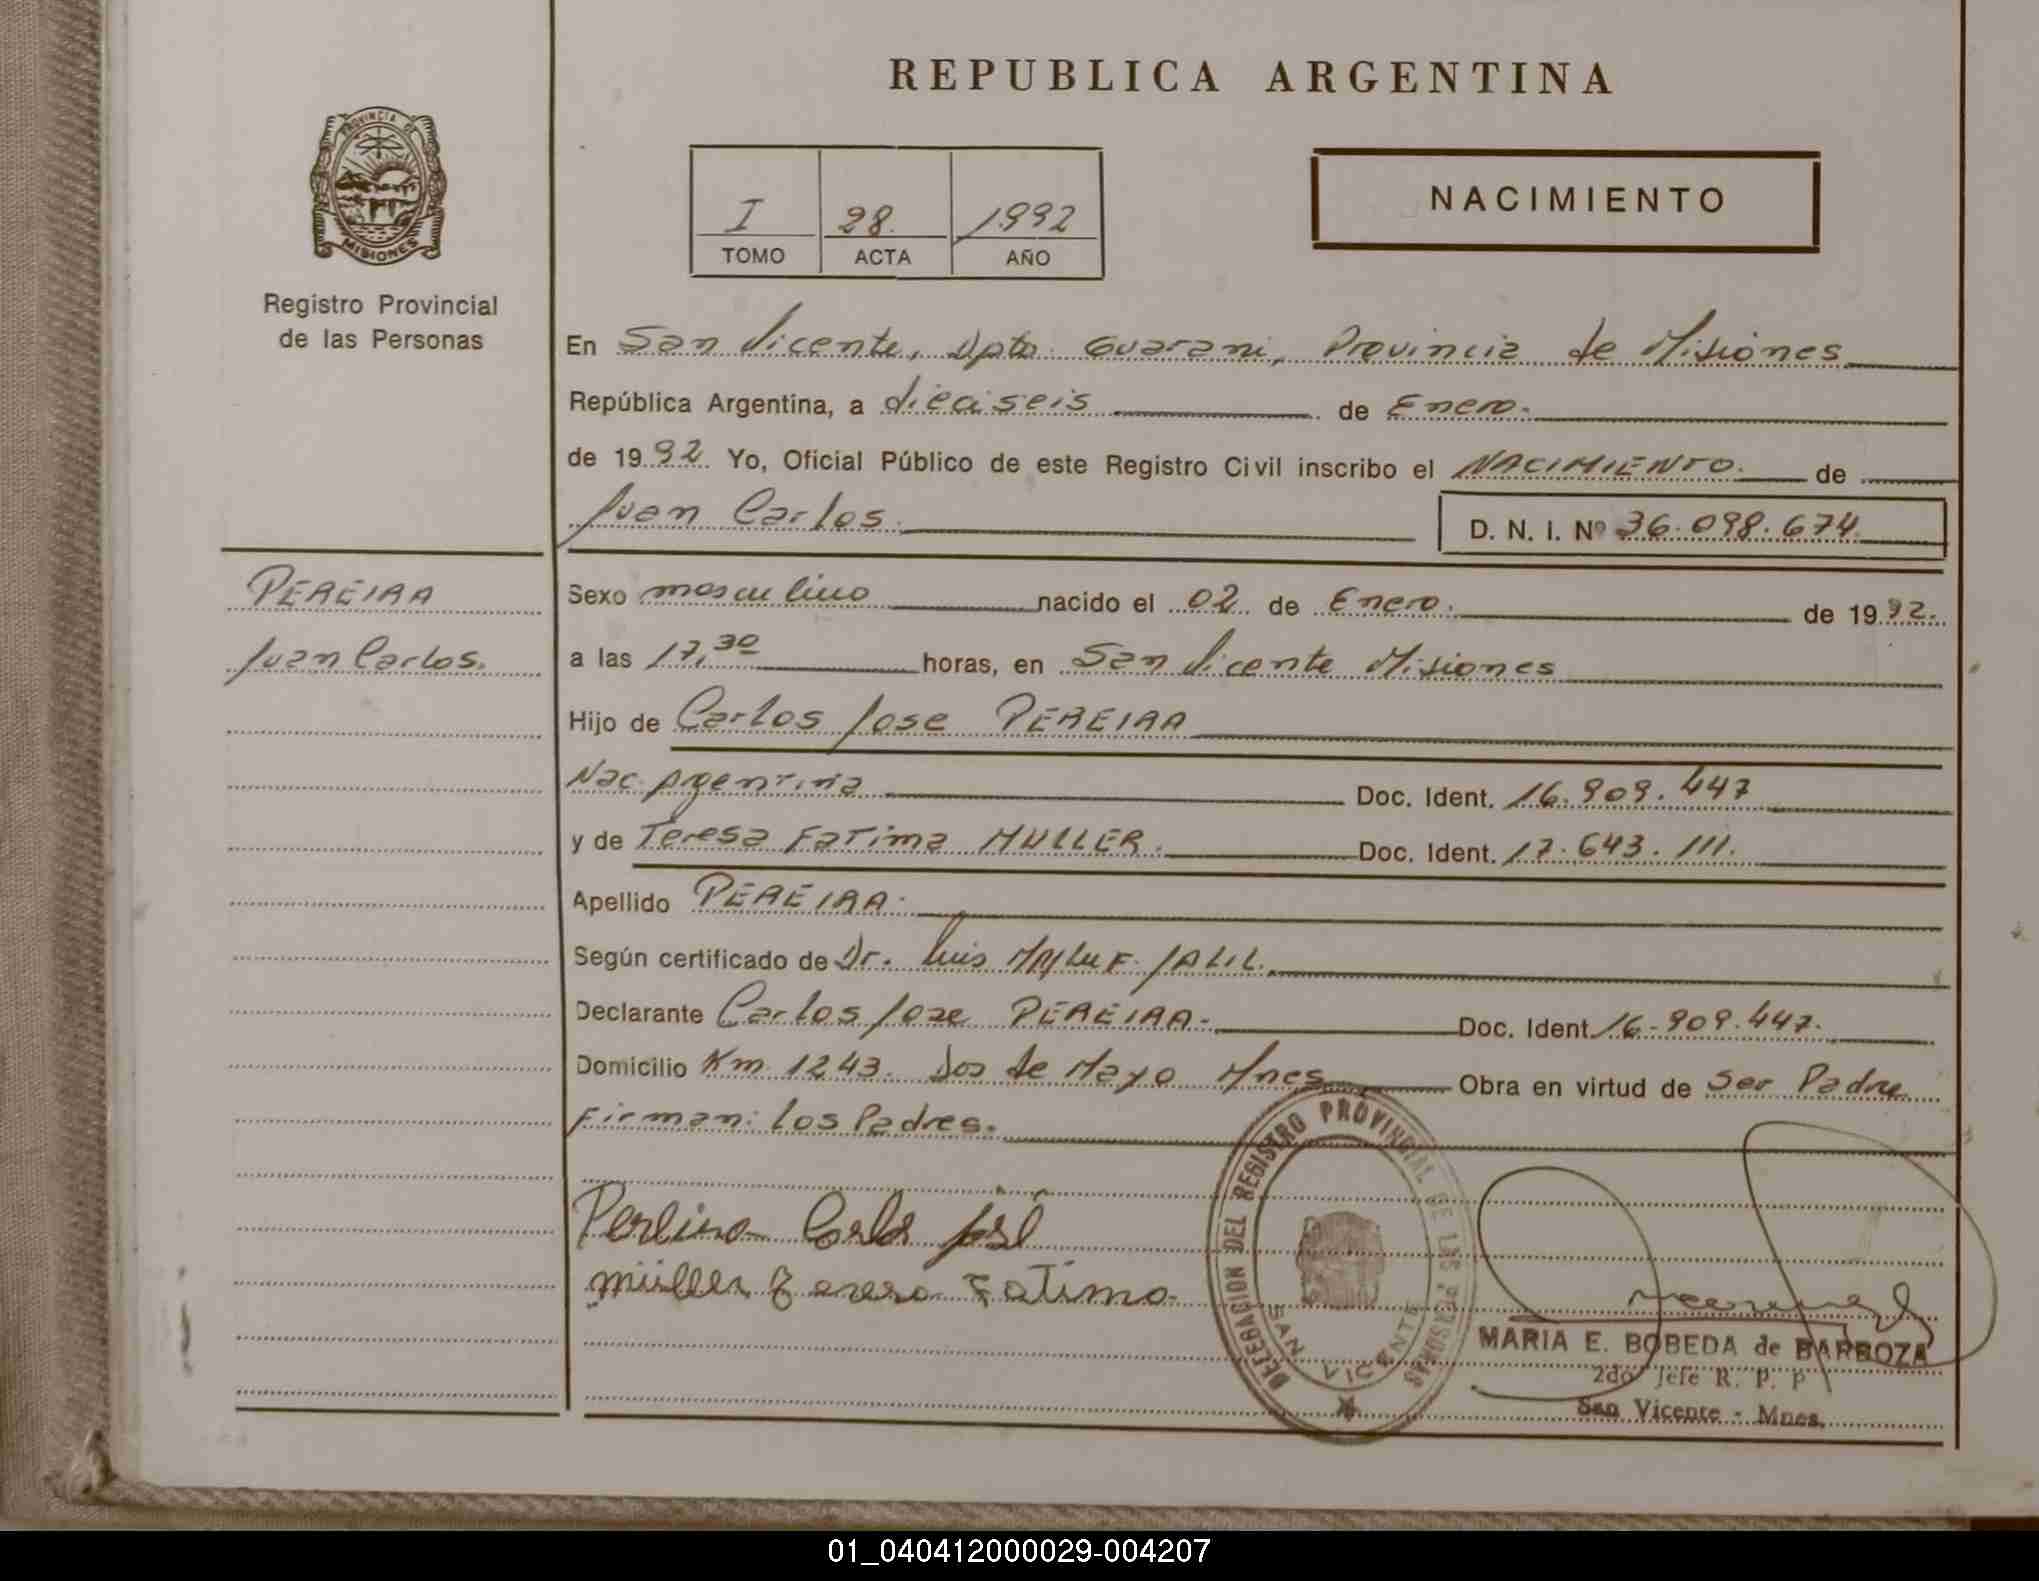 REPUBLICA ARGENTINA
PROVINCIA DE
MISIONES
Registro Provincial
de las Personas
I 28. 1992
TOMO ACTA AÑO
NACIMIENTO
En San Vicente, Dpto. Guarani, Provincia de Misiones
República Argentina, a dieciseis de Enero.
de 1992. Yo, Oficial Público de este Registro Civil inscribo el NACIMIENTO. de
Juan Carlos. D. N. I. Nº 36.098.674
PEREIRA
Juan Carlos.
Sexo masculino nacido el 02 de Enero. de 1992.
a las 17,30 horas, en San Vicente Misiones
Hijo de Carlos Jose PEREIRA
Nac. Argentina Doc. Ident. 16.909.447
y de Teresa Fatima MULLER. Doc. Ident. 17.643.111.
Apellido PEREIRA.
Según certificado de Dr. Luis MALUF JALIL.
Declarante Carlos Jose PEREIRA. Doc. Ident. 16.909.447.
Domicilio Km 1243. Dos de Mayo Mnes Obra en virtud de Ser Padre
Firman: los Padres.
Pereira Carlos José
Müller Teresa Fatima
DELEGACION DEL REGISTRO PROVINCIAL DE LAS PERSONAS
SAN VICENTE
MARIA E. BOBEDA de BARBOZA
2do Jefe R. P. P
San Vicente - Mnes.
01_040412000029-004207